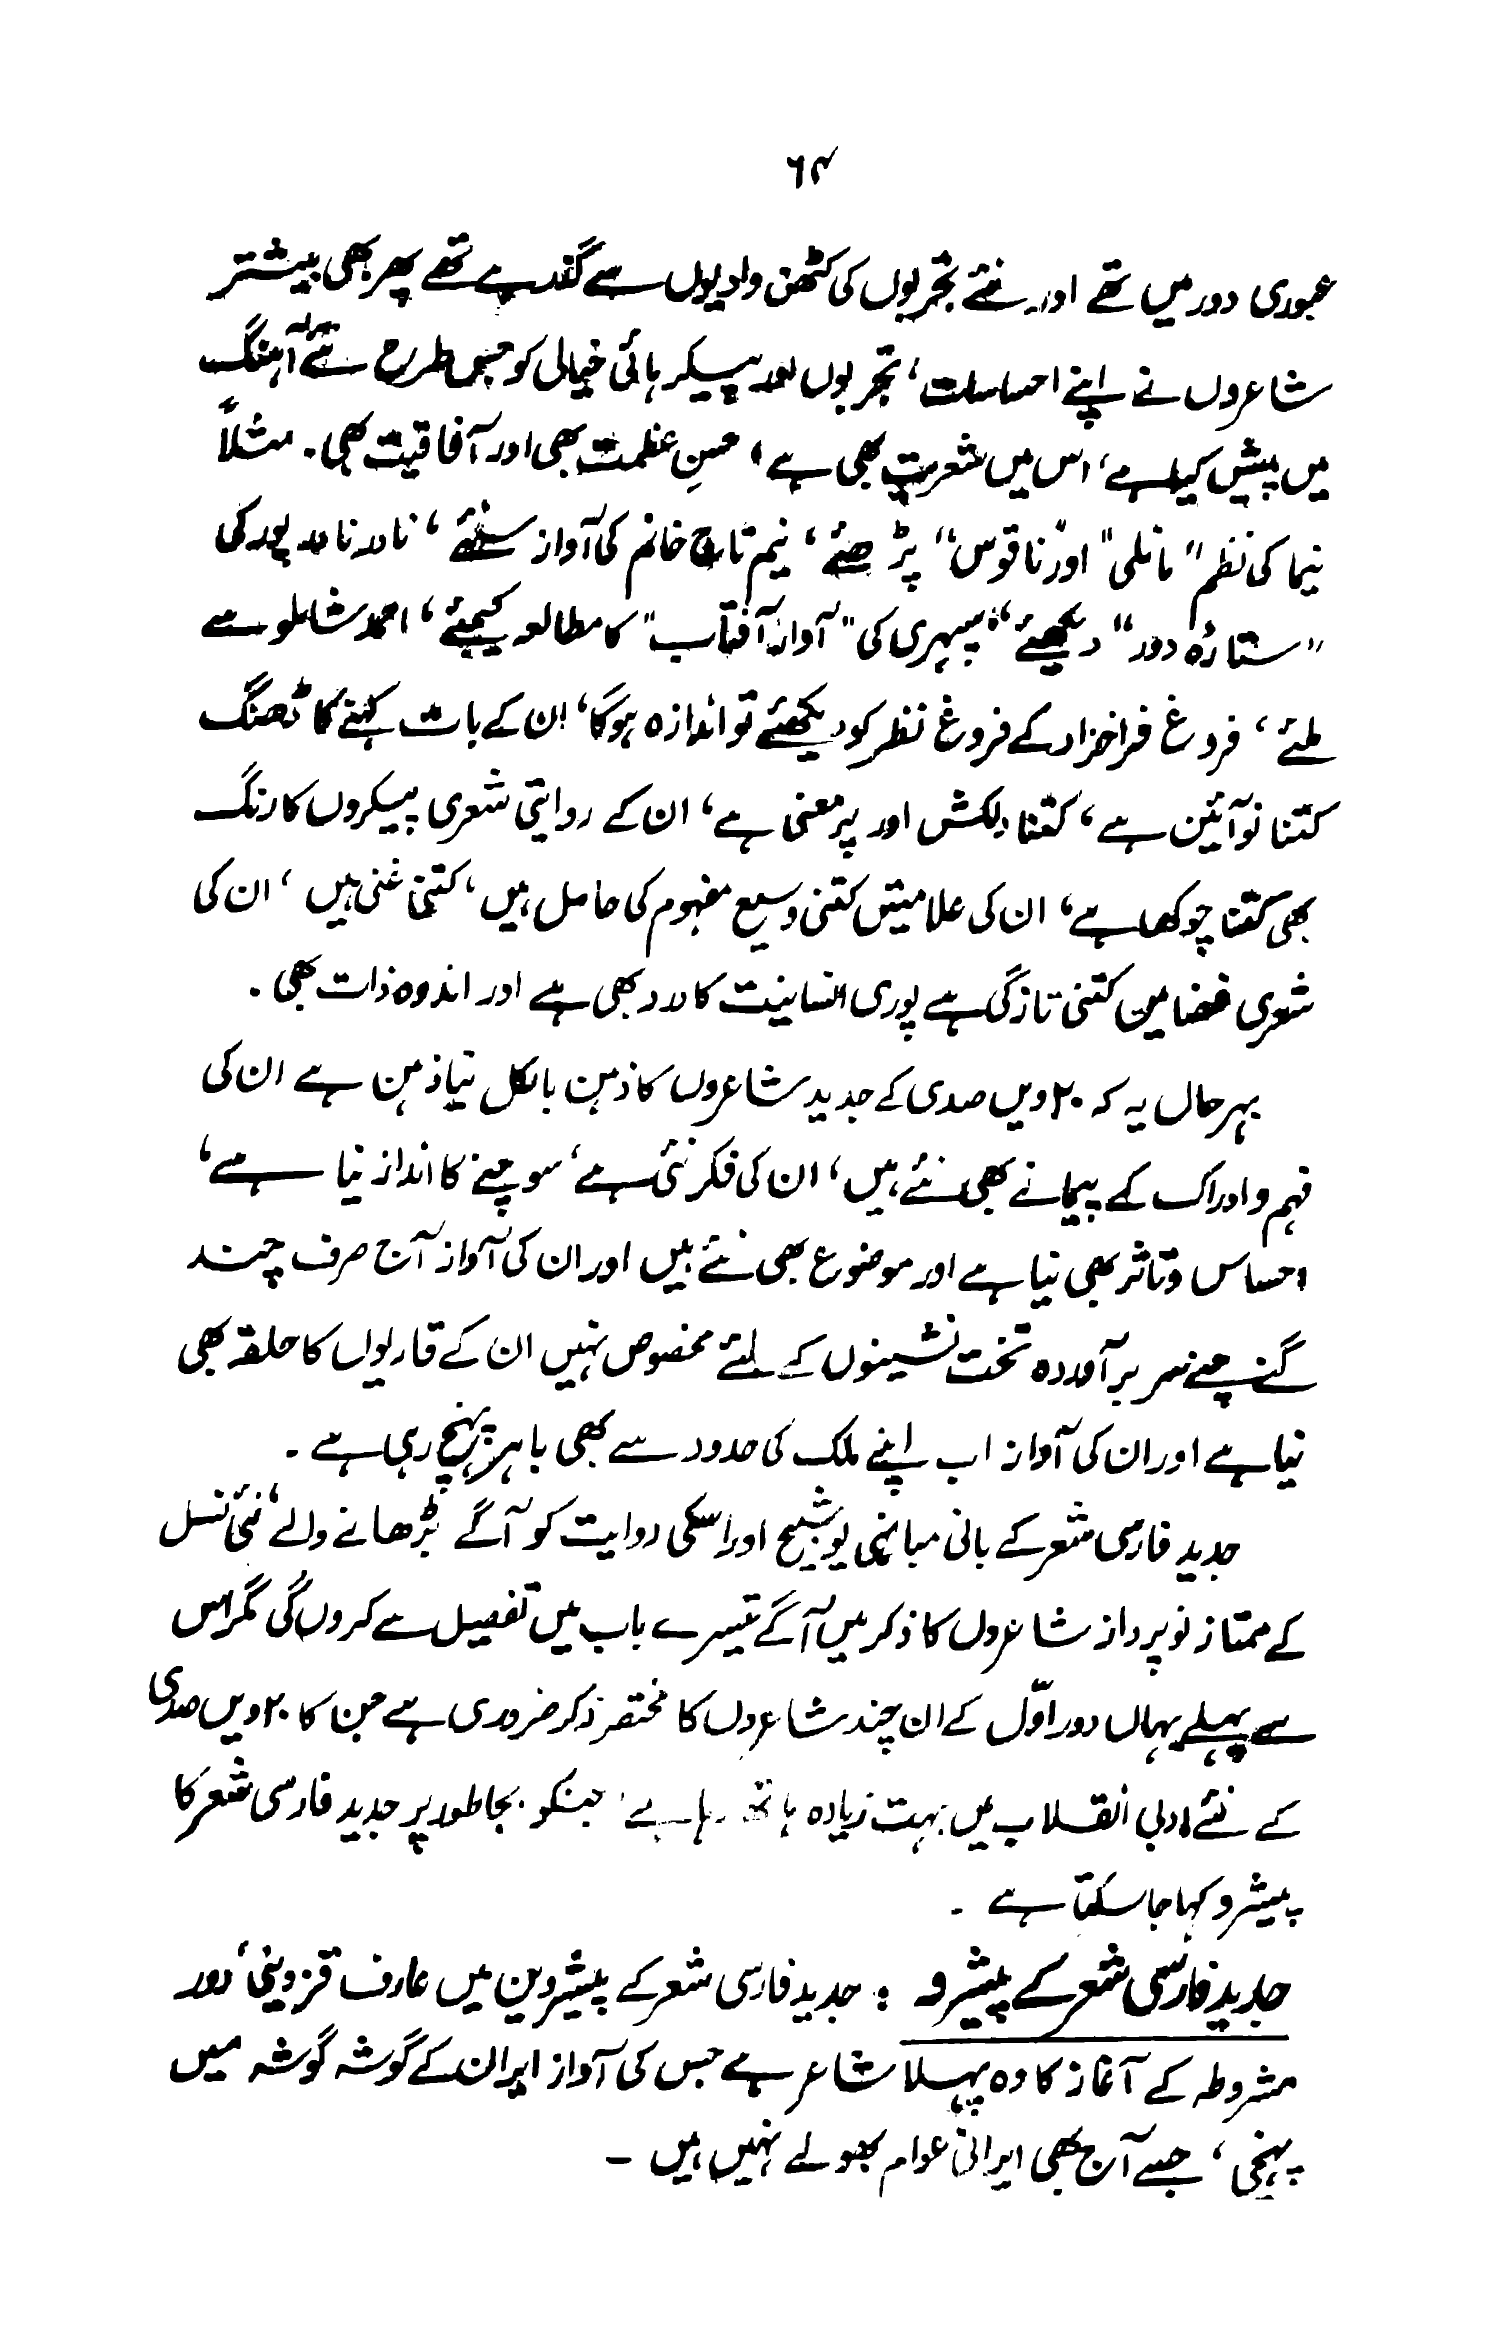 ۶۴
عبوری دور میں تھے اور نئے تجربوں کی کٹھن وادیوں سے گذرے تھے پھر بھی بیشتر
شاعروں نے اپنے احساسات، تجربوں اور پیکر ہائی خیالی کو جس طرح نئے آہنگ
میں پیش کیا ہے، اس میں شعریت بھی ہے، حسنِ عظمت بھی اور آفاقیت بھی۔ مثلاً
نیما کی نظم "مانلی" اور "ناقوس" پڑھئے، نیم تاج خانم کی آواز سنئے، نادر نادر پور کی
"ستارہ دور" دیکھئے، سپہری کی "آواز آفتاب" کا مطالعہ کیجئے، احمد شاملو سے
ملئے، فروغ فراخزاد کے فروغ نظر کو دیکھئے تو اندازہ ہوگا، ان کے بات کہنے کا ڈھنگ
کتنا نو آئین ہے، کتنا دلکش اور پر معنی ہے، ان کے روایتی شعری پیکروں کا رنگ
بھی کتنا چوکھا ہے، ان کی علامیتں کتنی وسیع مفہوم کی حامل ہیں، کتنی غنی ہیں، ان کی
شعری فضا میں کتنی تازگی ہے پوری انسانیت کا درد بھی ہے اور اندوہ ذات بھی۔
بہرحال یہ کہ ۲۰ ویں صدی کے جدید شاعروں کا ذہن بالکل نیا ذہن ہے ان کی
فہم و ادراک کے پیمانے بھی نئے ہیں، ان کی فکر نئی ہے، سوچنے کا انداز نیا ہے،
احساس و تاثر بھی نیا ہے اور موضوع بھی نئے ہیں اور ان کی آواز آج صرف چند
گنے چنے سر بر آوردہ تخت نشینوں کے لئے مخصوص نہیں ان کے قاریوں کا حلقہ بھی
نیا ہے اور ان کی آواز اب اپنے ملک کی حدود سے بھی باہر پہنچ رہی ہے۔
جدید فارسی شعر کے بانی مبانی یوشیج اور اسکی روایت کو آگے بڑھانے والے، نئی نسل
کے ممتاز نو پرداز شاعروں کا ذکر میں آگے تیسرے باب میں تفصیل سے کروں گی مگر اس
سے پہلے یہاں دور اوّل کے ان چند شاعروں کا مختصر ذکر ضروری ہے جن کا ۲۰ ویں صدی
کے نئے ادبی انقلاب میں بہت زیادہ ہاتھ رہا ہے، جنکو بجا طور پر جدید فارسی شعر کا
پیشرو کہا جا سکتا ہے۔
جدید فارسی شعر کے پیشرو : جدید فارسی شعر کے پیشروین میں عارف قزوینی، دور
مشروطہ کے آغاز کا وہ پہلا شاعر ہے جس کی آواز ایران کے گوشہ گوشہ میں
پہنچی، جسے آج بھی ایرانی عوام بھولے نہیں ہیں۔